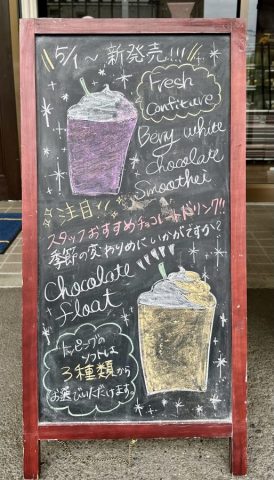 5/1〜新発売!!!
Fresh
Confiture
Berry White
Chocolate
Smoothei
注目!!
スタッフおすすめチョコレートドリンク!!
季節の変わりめにいかがですか?
Chocolate
float
トッピングの
ソフトは
3種類から
お選びいただけます。